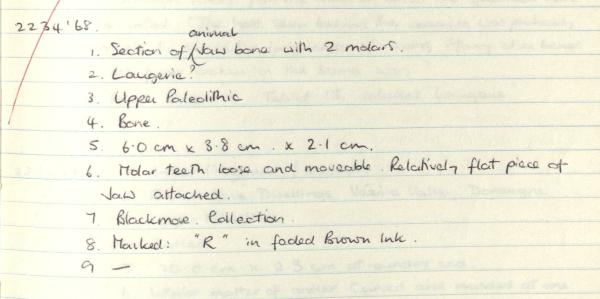 2234.'68.
animal
1. Section of Jaw bone with 2 molars.
2. Laugerie?
3. Upper Paleolithic
4. Bone.
5. 6.0 cm x 3.8 cm. x 2.1 cm.
6. Molar teeth loose and moveable. Relatively flat piece of
Jaw attached.
7. Blackmore Collection.
8. Marked: "R" in faded Brown Ink.
9 —